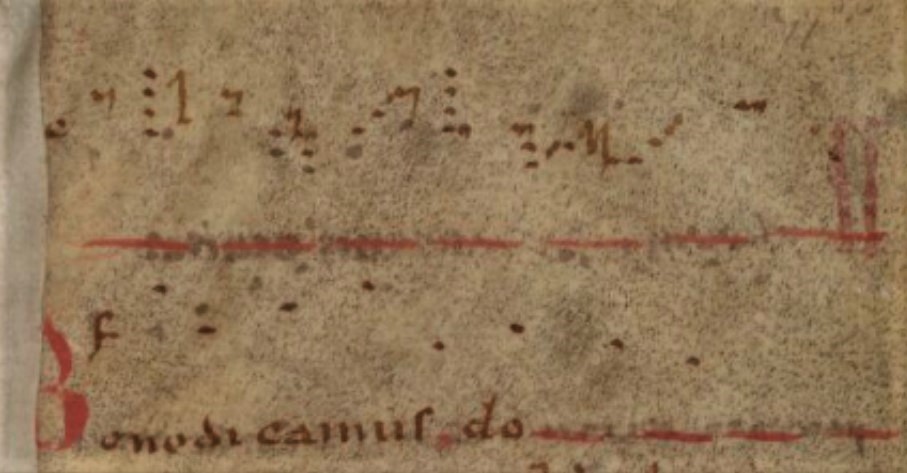 f
Benedicamus do